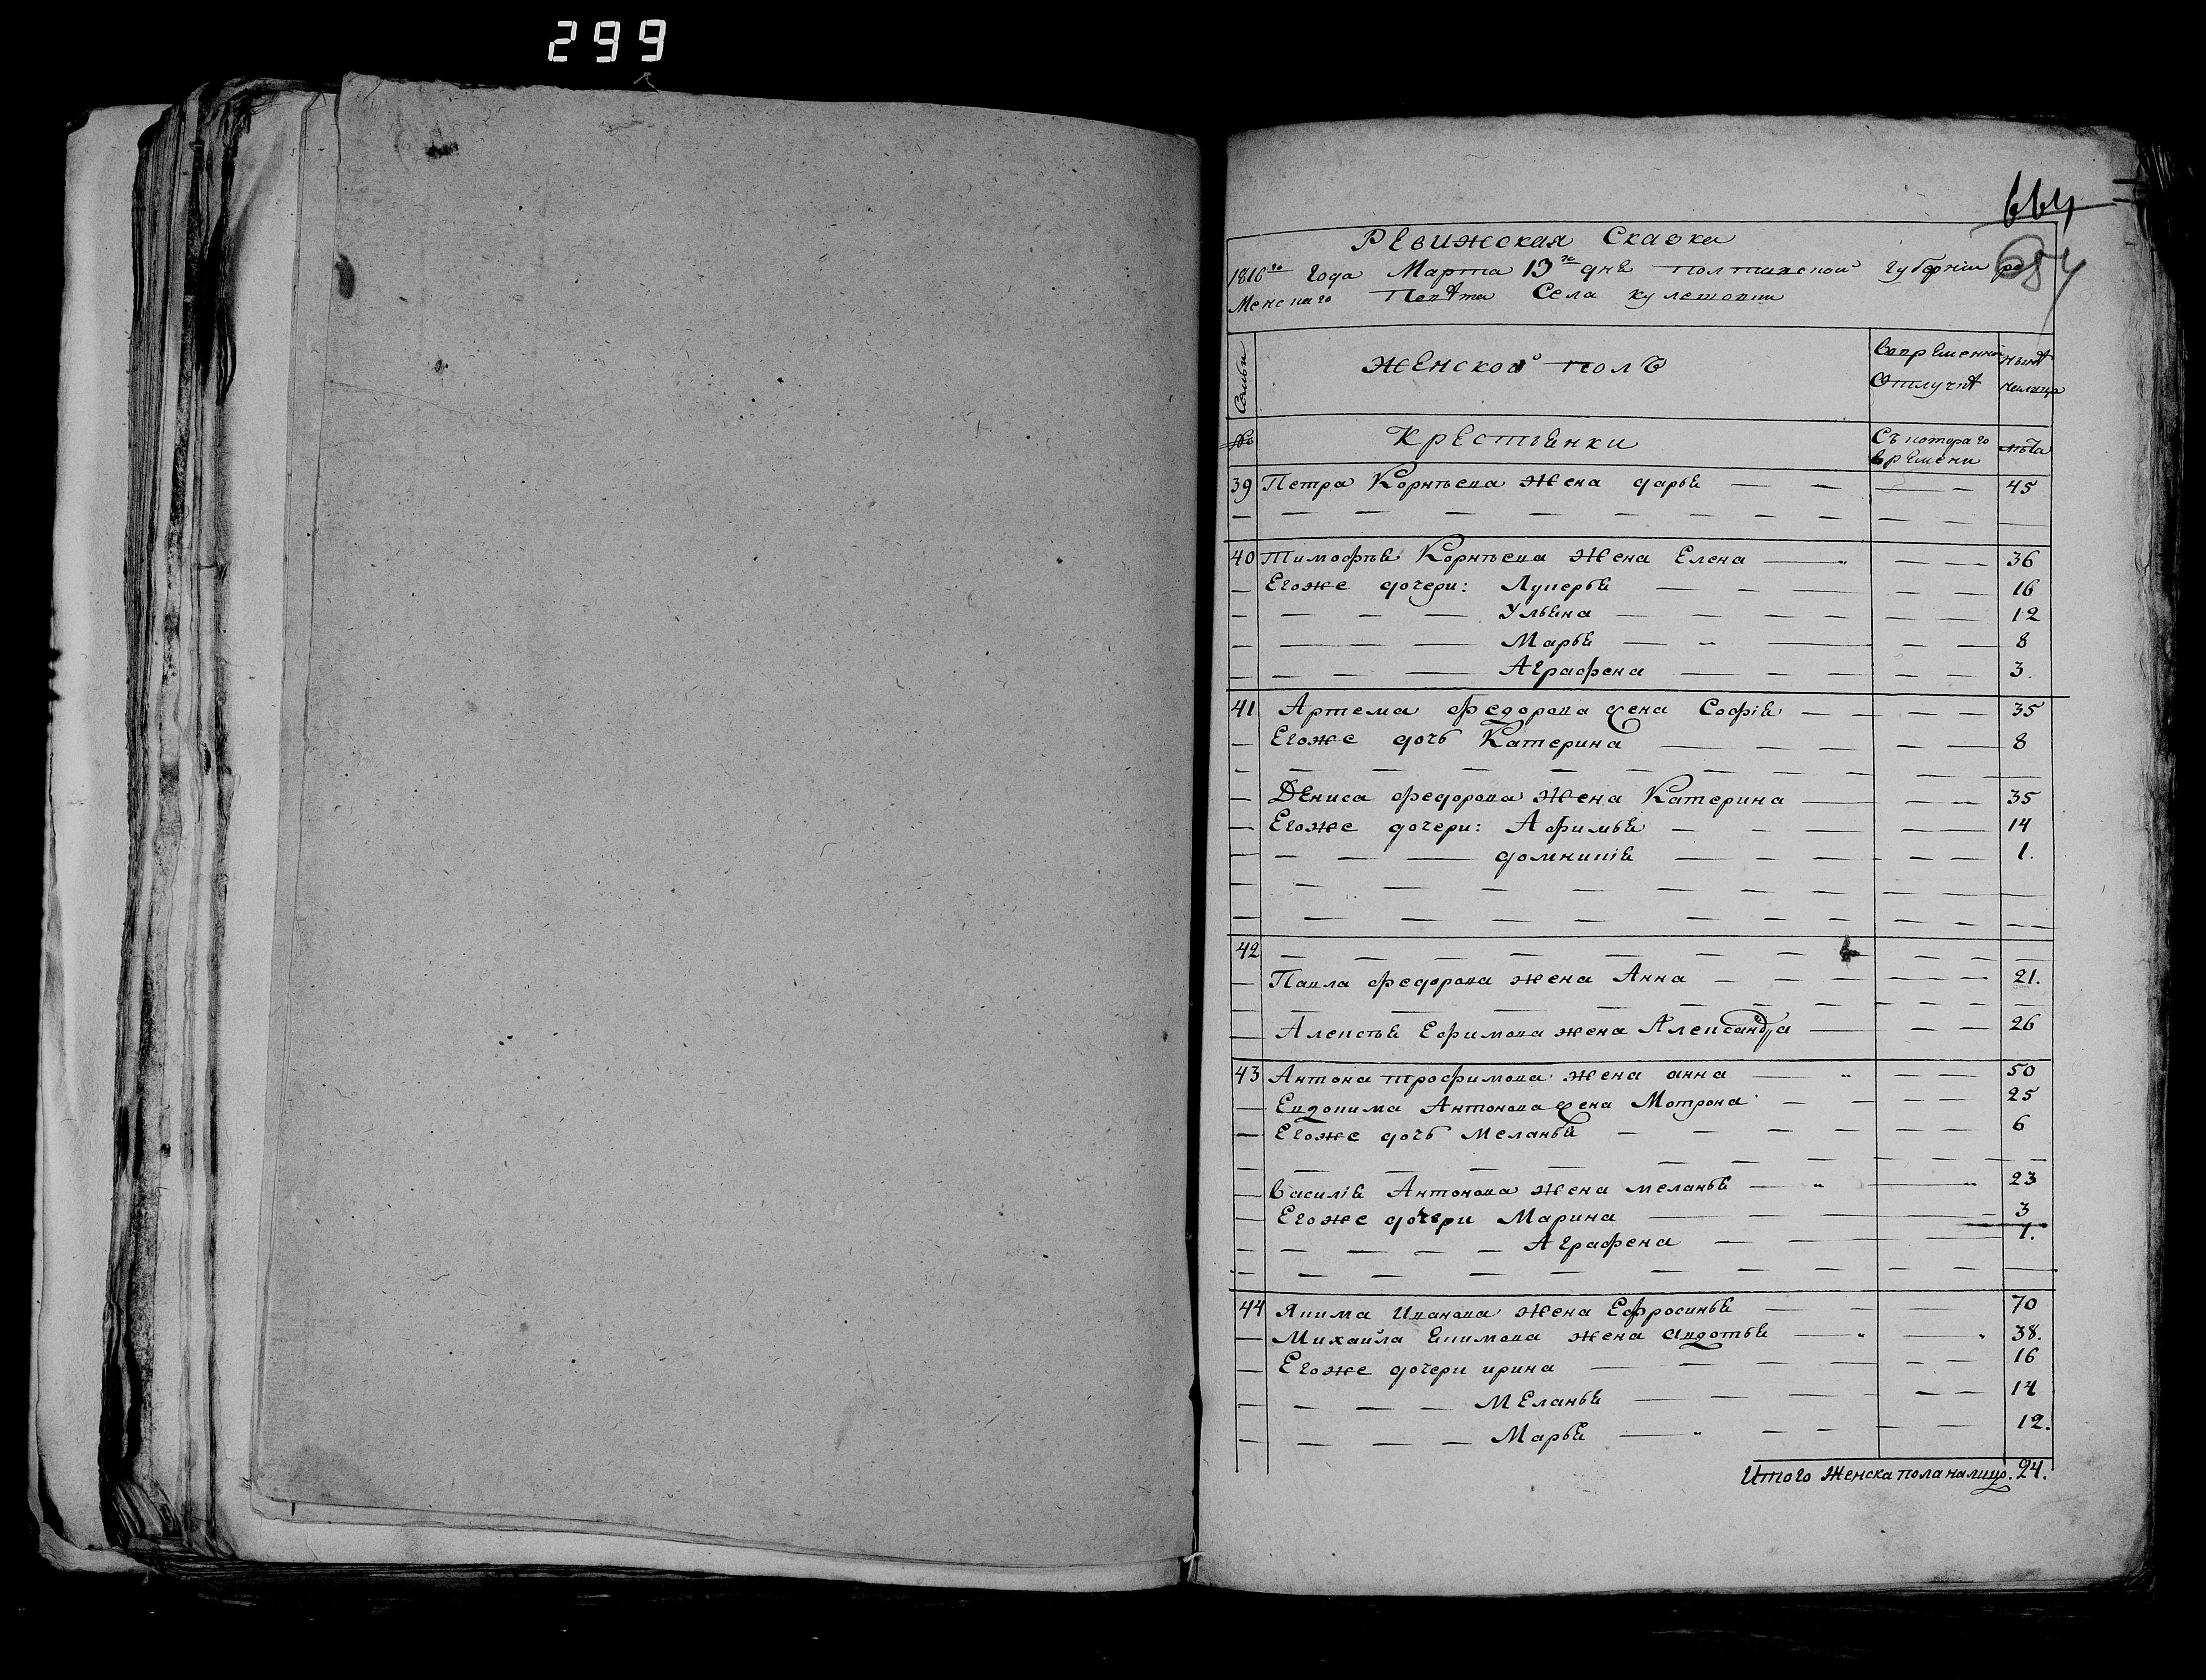 299
664
654
РЕвижская Сказка
1816го Года Марта 13го днѣ полтавской губерніи ро
Менскаго Повѣта Села кулешовки
Семьи
ЖЕнской полъ
Вовременной Отлучкѣ
нынѣ налицо
№
КрЕстьянки
Съ котораго времени
лѣта
39 Петра Корнѣева Жена дарья — 45
40 Тимофѣя Корнѣева Жена Елена — 36
Егоже дочери: Лукерья — 16
Ульяна — 12
Марья — 8
Аграфена — 3.
41 Артема федорова жена Софія — 35
Егоже дочь Катерина — 8
ДЕниса федорова Жена Катерина — 35
Егоже дочери: Афимья — 14
домникія — 1.
42
Павла федорова жена Анна — 21.
Алексѣя Ефимова жена Александра — 26
43 Антона трофимова жена анна — 50
Евдокима Антонова жена Мотрона — 25
Егоже дочь меланья — 6
Василія Антонова жена меланья — 23
Егоже дочери Марина — 3
Аграфена — 1.
44 Якима Иванова Жена Ефросинья — 70
Михайла Якимова жена Авдотья — 38.
Егоже дочери ирина — 16
МЕланья — 14
Марья — 12.
Итого Женска пола налицо. 24.